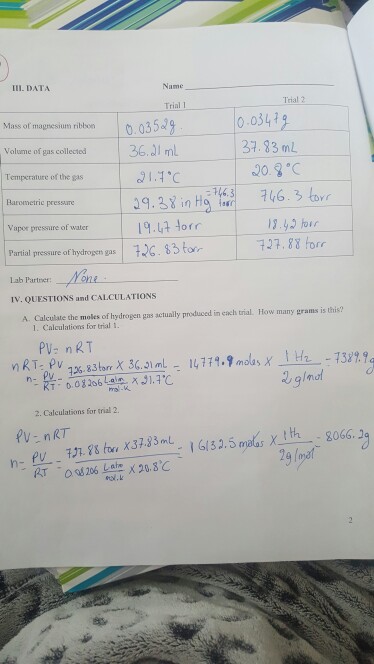 III. DATA
Name
Trial 1 Trial 2
Mass of magnesium ribbon 0.0352g 0.0347g
Volume of gas collected 36.21 mL 37.83 mL
Temperature of the gas 21.7°C 20.8°C
Barometric pressure 29.38 in Hg =746.3 torr 746.3 torr
Vapor pressure of water 19.47 torr 18.42 torr
Partial pressure of hydrogen gas 726.83 torr 727.88 torr
Lab Partner: None.
IV. QUESTIONS and CALCULATIONS
A. Calculate the moles of hydrogen gas actually produced in each trial. How many grams is this?
1. Calculations for trial 1.
PV= nRT
nRT= PV
n= PV/RT = 726.83torr X 36.21 mL / 0.08206 L atm/mol.K X 21.7°C = 14779.9 moles X 1 H2 / 2 g/mol = 7389.9g
2. Calculations for trial 2.
PV = nRT
n= PV/RT = 727.88 torr X 37.83 mL / 0.08206 L atm/mol.K X 20.8°C = 16132.5 moles X 1 H2 / 2g/mol = 8066.2g
2